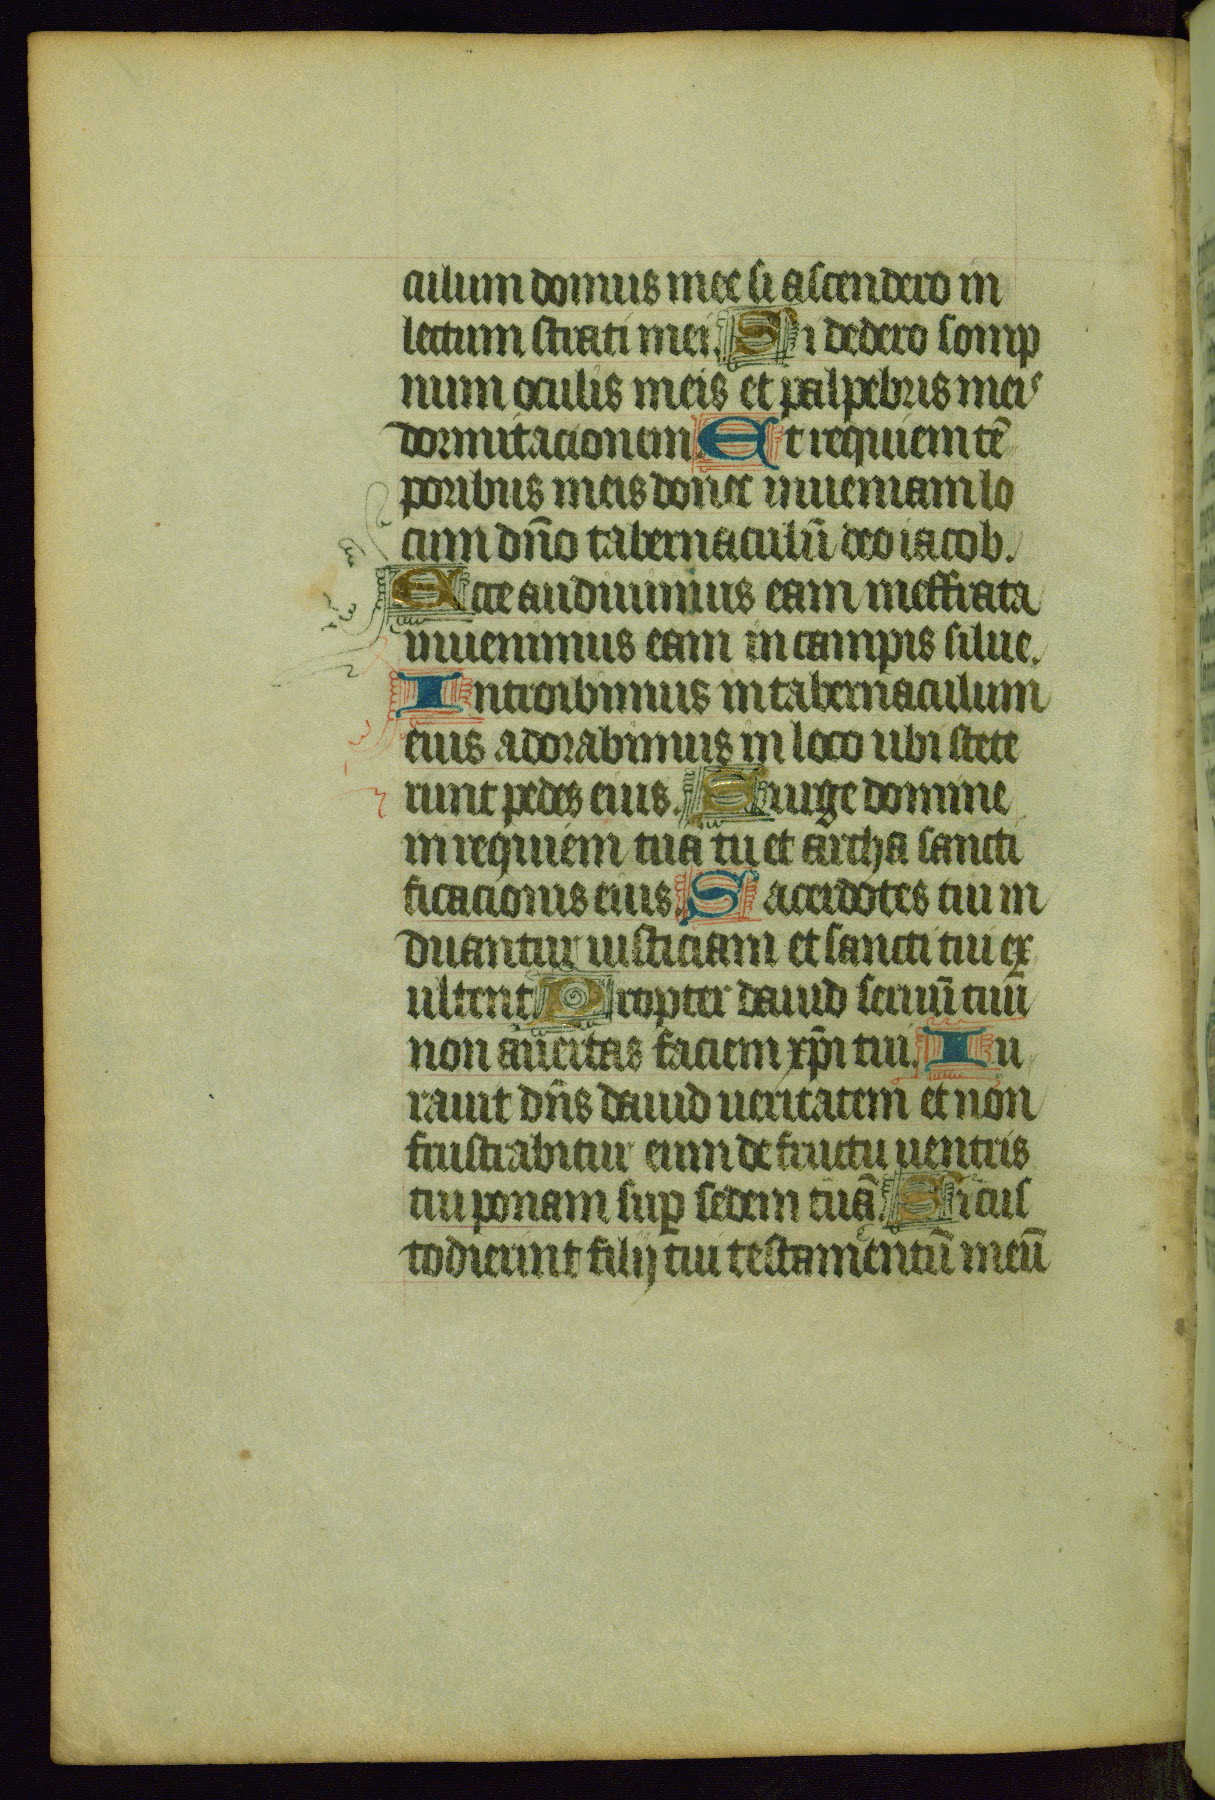 culum domus mee si ascendero in
lectum strati mei. Si dedero somp
num oculis meis et palpebris meis
dormitacionem. Et requiem tē
poribus meis donec inueniam lo
cum dn̄o tabernaculū deo iacob.
Ecce audiuimus eam in effrata
inuenimus eam in campis silue.
Introibimus in tabernaculum
eius adorabimus in loco ubi stete
runt pedes eius. Surge domine
in requiem tua tu et archa sancti
ficacionis eius. Sacerdotes tui in
duantur iusticiam et sancti tui ex
ultent Propter dauid seruū tuū
non auertas faciem xp̄i tui. Iu
rauit dn̄s dauid ueritatem et non
frustrabitur eum de fructu uentris
tui ponam sup̄ sedem tuā. Si cus
todierint filij tui testamentū meū